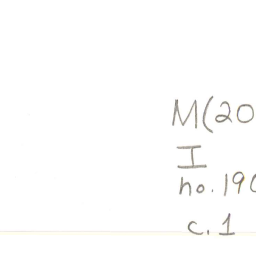 M(20
I
no. 190
c. 1